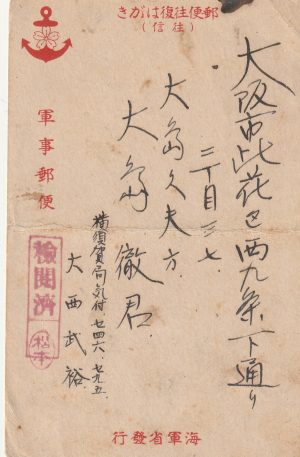 郵便往復はがき
(往信)
軍事郵便
大阪市此花区西九条下通り
三丁目三七
大島久夫方
大島徹君
横須賀局気付 セ四六 セ九五
大西武裕
検閲済
松本
海軍省發行